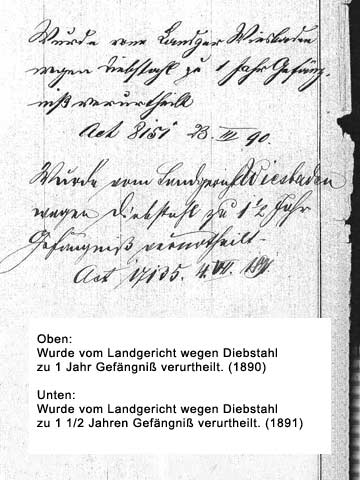 Wurde vom Landger Wiesbaden
wegen Diebstahl zu 1 Jahr Gefäng-
niß verurtheilt
Act 8151 23. III 90.
Wurde vom Landgericht Wiesbaden
wegen Diebstahl zu 1 1/2 Jahr
Gefängniß verurtheilt.
Act 17135. 4. VII. 1891.
Oben:
Wurde vom Landgericht wegen Diebstahl
zu 1 Jahr Gefängniß verurtheilt. (1890)
Unten:
Wurde vom Landgericht wegen Diebstahl
zu 1 1/2 Jahren Gefängniß verurtheilt. (1891)